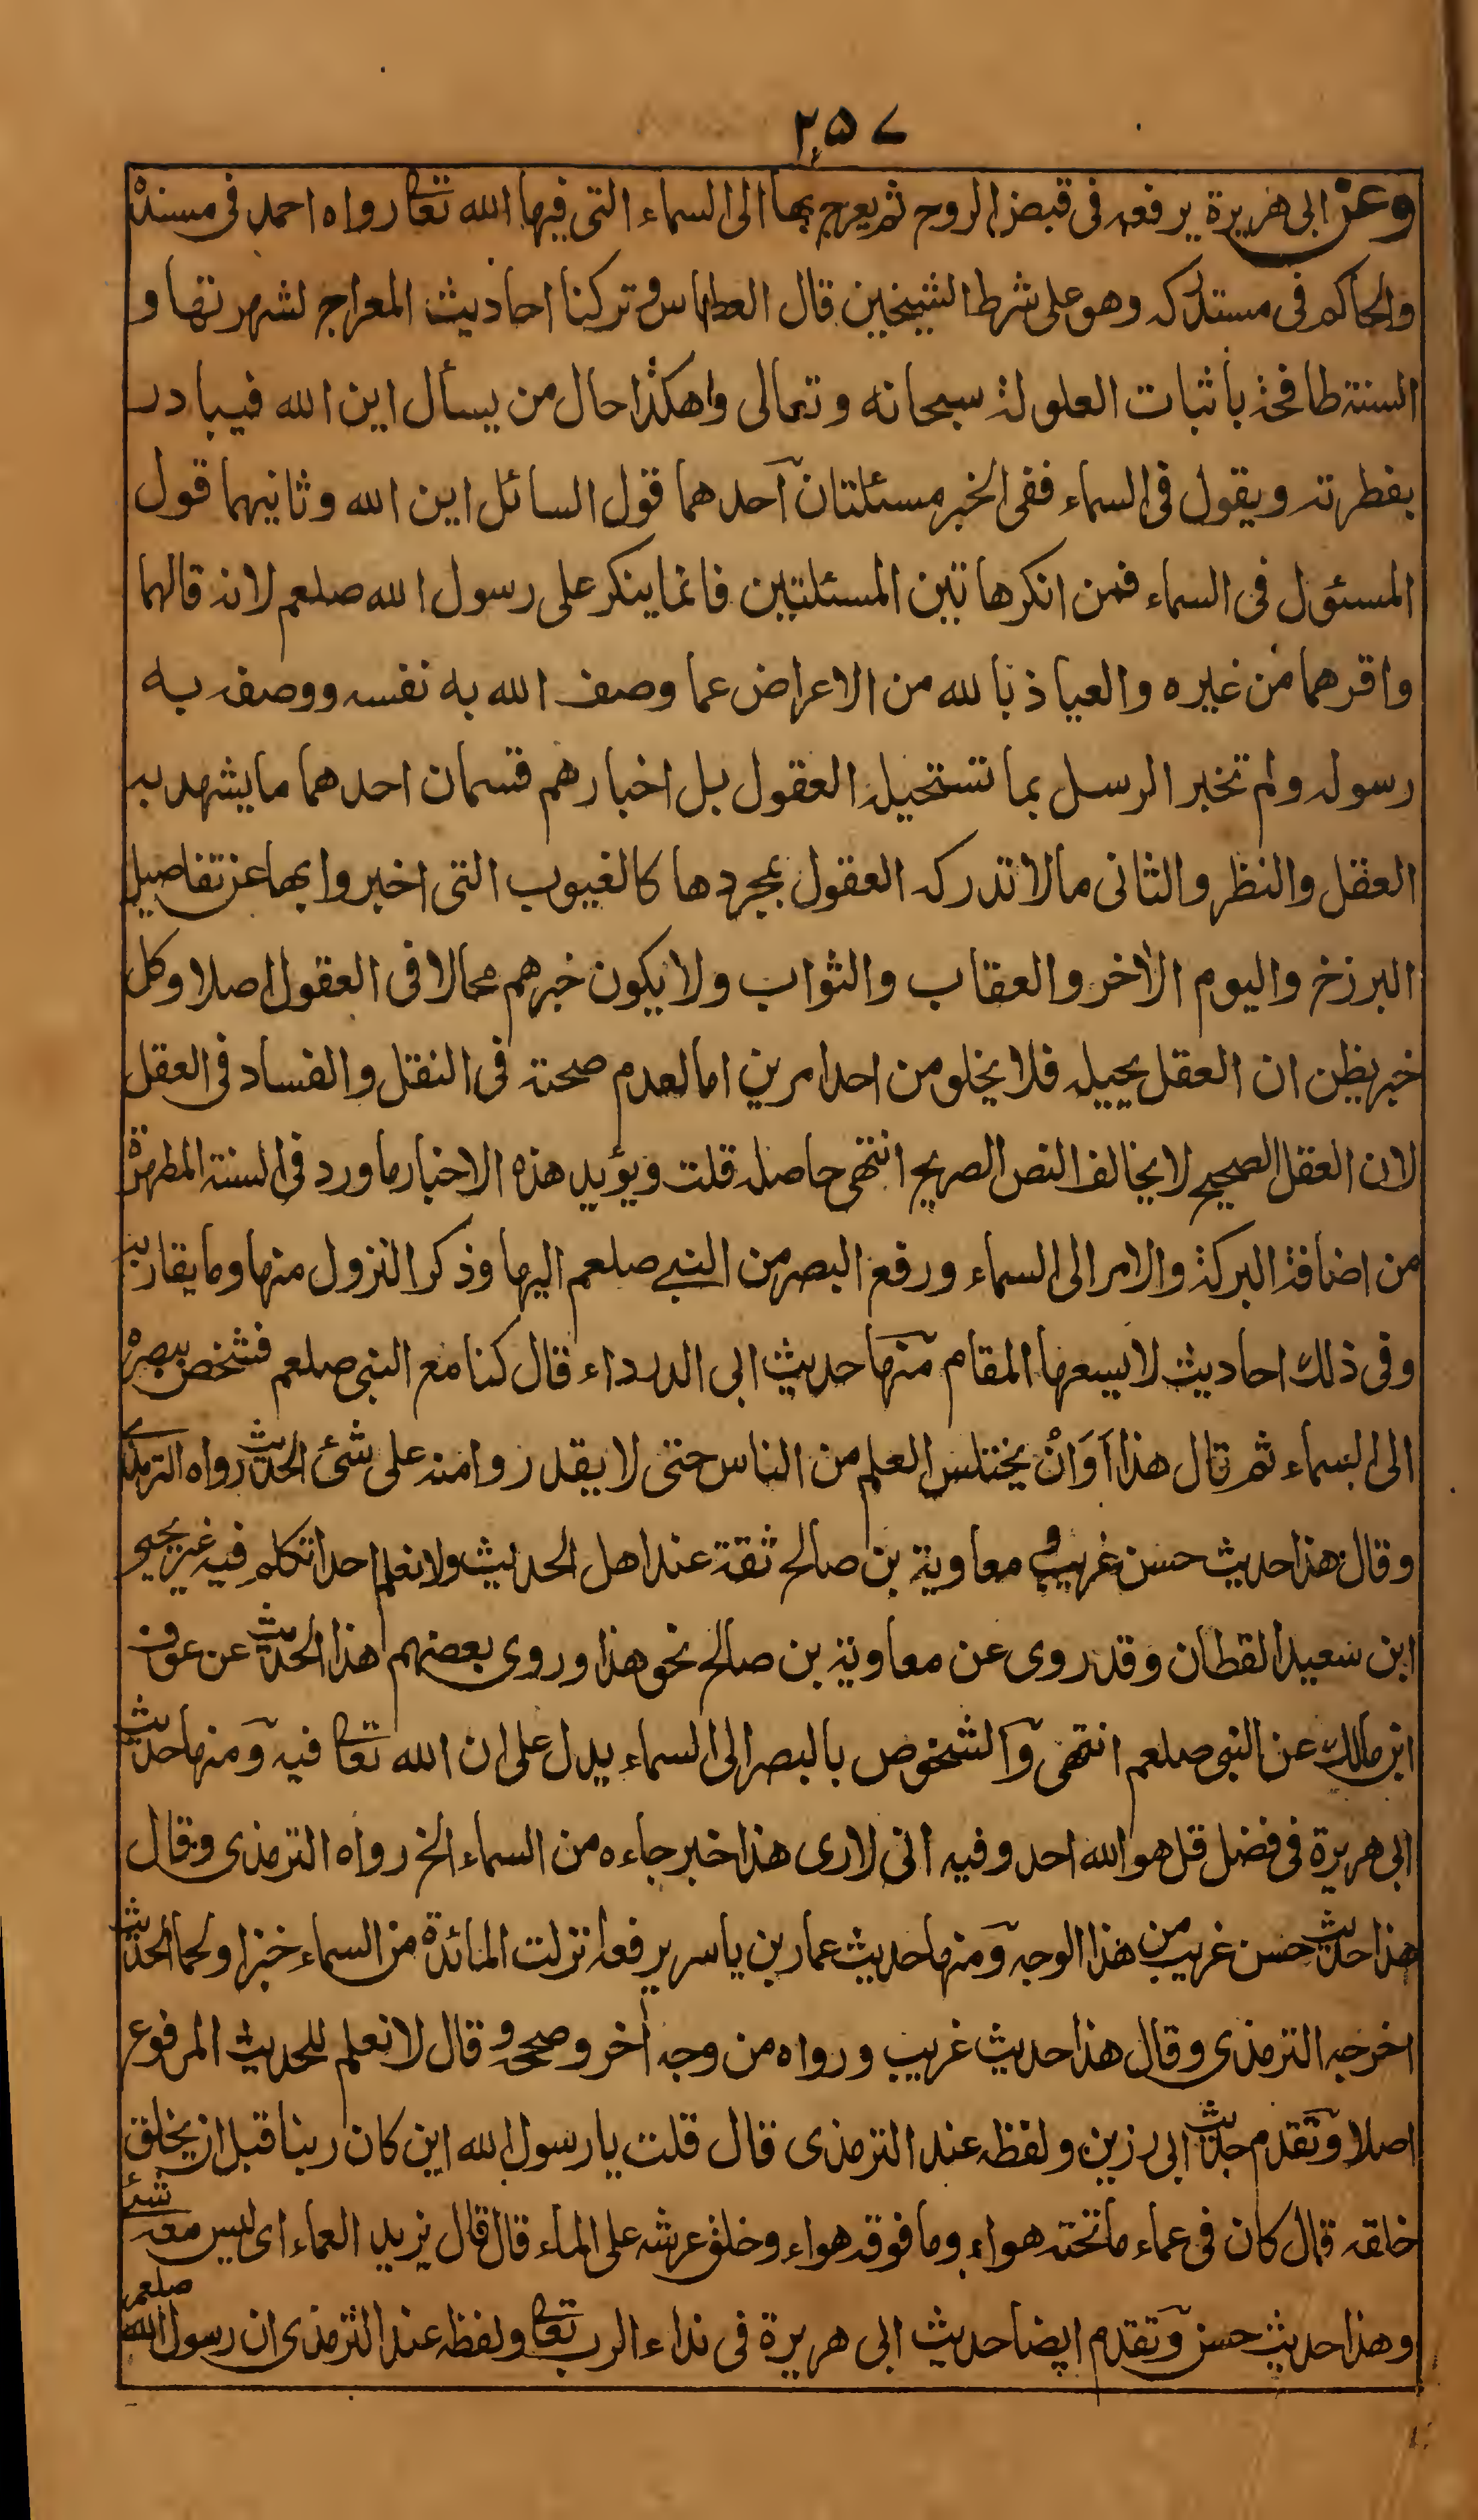 ٢٥٧
وعن ابى هريرة يرفعه فى قبض الروح ثم يعرج بها الى السماء التى فيها الله تعا رواه احمد فى مسنده
والحاكم فى مستدركه وهو على شرط الشيخين قال العطاس وتركنا احاديث المعراج لشهرتها و
السنة طافحة باثبات العلو لله سبحانه وتعالى واهكذا حال من يسأل اين الله فيبادر
بفطرته ويقول فى السماء ففى الخبر مسئلتان آحدهما قول السائل اين الله وثانيهما قول
المسئول فى السماء فمن انكر هاتين المسئلتين فانما ينكر على رسول الله صلعم لانه قالهما
واقرهما من غيره والعياذ بالله من الاعراض عما وصف الله به نفسه ووصفه به
رسوله ولم تخبر الرسل بما تستحيله العقول بل اخبارهم قسمان احدهما ما يشهد به
العقل والنظر والثانى ما لا تدركه العقول بمجردها كالغيوب التى اخبروا بها عن تفاصيل
البرزخ واليوم الاخر والعقاب والثواب ولا يكون خبرهم محالا فى العقول اصلا وكل
خبر يظن ان العقل يحيله فلا يخلو من احد امرين اما لعدم صحته فى النقل والفساد فى العقل
لان العقل الصحيح لا يخالف النص الصريح انتهى حاصله قلت ويؤيد هذه الاخبار ما ورد فى السنة المطهرة
من اضافة البركة والامر الى السماء ورفع البصر من النبے صلعم اليها وذكر النزول منها وما يقاربه
وفى ذلك احاديث لا يسعها المقام منها حديث ابى الدرداء قال كنا مع النبى صلعم فشخص ببصره
الى السماء ثم قال هذا اَوَانُ يختلس العلم من الناس حتى لا يقدروا منه على شئ الحديث رواه الترمذى
وقال هذا حديث حسن غريب و معاوية بن صالح ثقة عند اهل الحديث ولا نعلم احدا تكلم فيه غير يحيى
ابن سعيد القطان وقد روى عن معاوية بن صالح نحو هذا وروى بعضهم هذا الحديث عن عوف
ابن مالك عن النبى صلعم انتهى والشخوص بالبصر الى السماء يدل على ان الله تعا فيه ومنها حديث
ابى هريرة فى فضل قل هو الله احد وفيه انى لارى هذا خبر جاءه من السماء الخ رواه الترمذى وقال
هذا حديث حسن غريب من هذا الوجه ومنها حديث عمار بن ياسر يرفعه نزلت المائدة من السماء خبزا ولحما الحديث
اخرجه الترمذى وقال هذا حديث غريب ورواه من وجه آخر وصححه و قال لا نعلم للحديث المرفوع
اصلا وتقدم حديث ابى رزين ولفظه عند الترمذى قال قلت يا رسول الله اين كان ربنا قبل ان يخلق
خلقه قال كان فى عماء ما تحته هواء وما فوقه هواء وخلق عرشه على الماء قال قال يزيد العماء اى ليس معه شئ
وهذا حديث حسن وتقدم ايضا حديث ابى هريرة فى نداء الرب تعا ولفظه عند الترمذى ان رسول الله صلعم